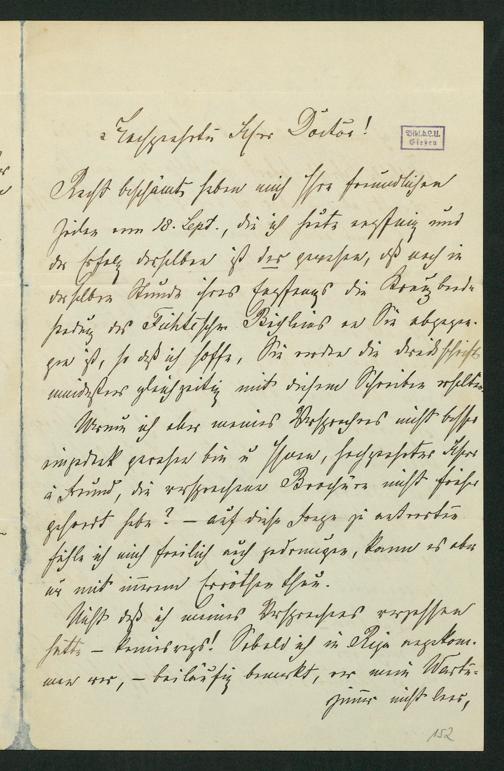 Hochgeehrter Herr Doctor!
Bibl. d. L. U.
Gießen
Recht beschämt haben mich Ihre freundlichen
Zeilen vom 18. Sept., die ich heute empfing und
der Erfolg derselben ist der gewesen, daß noch in
derselben Stunde ihres Empfangs die Kreuzband-
sendung des Büchleins an Sie abgegan-
gen ist, so daß ich hoffe, Sie werden die Druckschrift
mindestens gleichzeitig mit diesem Schreiben erhalten.
Warum ich aber meines Versprechens nicht besser
eingedenk gewesen bin u Ihnen, hochgeehrter Herr
u Freund, die versprochene Brochüre nicht früher
gesandt habe? – auf diese Frage zu antworten
fühle ich mich freilich auch gedrungen, kann es aber
nur mit innerem Erröthen thun.
Nicht daß ich meines Versprechens vergessen
hätte – keineswegs! Sobald ich in Riga angekom-
men war, – beiläufig bemerkt, war mein Warte-
zimmer nicht leer,
152